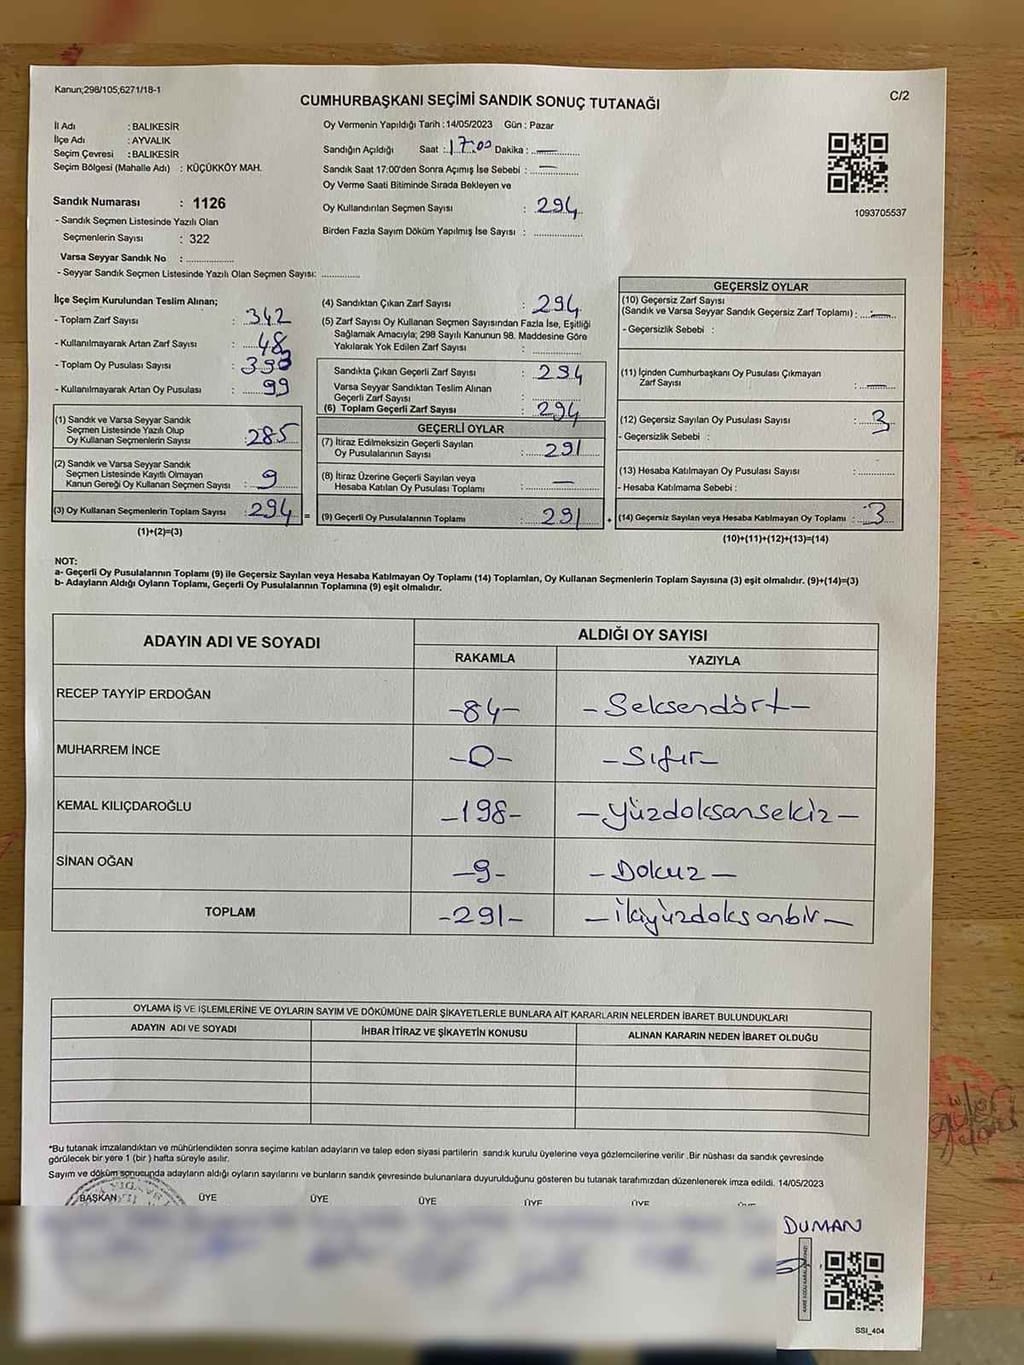 Kanun;298/105;6271/18-1
C/2
CUMHURBAŞKANI SEÇİMİ SANDIK SONUÇ TUTANAĞI
İl Adı : BALIKESİR
İlçe Adı : AYVALIK
Seçim Çevresi : BALIKESİR
Seçim Bölgesi (Mahalle Adı) : KÜÇÜKKÖY MAH.
Sandık Numarası : 1126
- Sandık Seçmen Listesinde Yazılı Olan
Seçmenlerin Sayısı : 322
Varsa Seyyar Sandık No : ................
- Seyyar Sandık Seçmen Listesinde Yazılı Olan Seçmen Sayısı: .............
Oy Vermenin Yapıldığı Tarih :14/05/2023 Gün : Pazar
Sandığın Açıldığı Saat : 17.00 Dakika : —
Sandık Saat 17:00'den Sonra Açımış İse Sebebi : —
Oy Verme Saati Bitiminde Sırada Bekleyen ve
Oy Kullandırılan Seçmen Sayısı : 294
Birden Fazla Sayım Döküm Yapılmış İse Sayısı : ................
1093705537
İlçe Seçim Kurulundan Teslim Alınan;
- Toplam Zarf Sayısı : 342
- Kullanılmayarak Artan Zarf Sayısı : 48
- Toplam Oy Pusulası Sayısı :
- Kullanılmayarak Artan Oy Pusulası : 99
(1) Sandık ve Varsa Seyyar Sandık
Seçmen Listesinde Yazılı Olup
Oy Kullanan Seçmenlerin Sayısı : 285
(2) Sandık ve Varsa Seyyar Sandık
Seçmen Listesinde Kayıtlı Olmayan
Kanun Gereği Oy Kullanan Seçmen Sayısı : 9
(3) Oy Kullanan Seçmenlerin Toplam Sayısı : 294 =
(1)+(2)=(3)
(4) Sandıktan Çıkan Zarf Sayısı : 294
(5) Zarf Sayısı Oy Kullanan Seçmen Sayısından Fazla İse, Eşitliği
Sağlamak Amacıyla; 298 Sayılı Kanunun 98. Maddesine Göre
Yakılarak Yok Edilen Zarf Sayısı : ................
Sandıkta Çıkan Geçerli Zarf Sayısı : 294
Varsa Seyyar Sandıktan Teslim Alınan
Geçerli Zarf Sayısı : ................
(6) Toplam Geçerli Zarf Sayısı : 294
GEÇERLİ OYLAR
(7) İtiraz Edilmeksizin Geçerli Sayılan
Oy Pusulalarının Sayısı : 291
(8) İtiraz Üzerine Geçerli Sayılan veya
Hesaba Katılan Oy Pusulası Toplamı : —
(9) Geçerli Oy Pusulalarının Toplamı : 291 +
GEÇERSİZ OYLAR
(10) Geçersiz Zarf Sayısı
(Sandık ve Varsa Seyyar Sandık Geçersiz Zarf Toplamı) : —
- Geçersizlik Sebebi :
(11) İçinden Cumhurbaşkanı Oy Pusulası Çıkmayan
Zarf Sayısı : —
(12) Geçersiz Sayılan Oy Pusulası Sayısı : 3
- Geçersizlik Sebebi :
(13) Hesaba Katılmayan Oy Pusulası Sayısı : ............
- Hesaba Katılmama Sebebi :
(14) Geçersiz Sayılan veya Hesaba Katılmayan Oy Toplamı : 3
(10)+(11)+(12)+(13)=(14)
NOT:
a- Geçerli Oy Pusulalarının Toplamı (9) ile Geçersiz Sayılan veya Hesaba Katılmayan Oy Toplamı (14) Toplamları, Oy Kullanan Seçmenlerin Toplam Sayısına (3) eşit olmalıdır. (9)+(14)=(3)
b- Adayların Aldığı Oyların Toplamı, Geçerli Oy Pusulalarının Toplamına (9) eşit olmalıdır.
ADAYIN ADI VE SOYADI
ALDIĞI OY SAYISI
RAKAMLA YAZIYLA
RECEP TAYYİP ERDOĞAN -84- -Seksendört-
MUHARREM İNCE -0- -Sıfır-
KEMAL KILIÇDAROĞLU -198- -Yüzdoksansekiz-
SİNAN OĞAN -9- -Dokuz-
TOPLAM -291- -ikiyüzdoksanbir-
OYLAMA İŞ VE İŞLEMLERİNE VE OYLARIN SAYIM VE DÖKÜMÜNE DAİR ŞİKAYETLERLE BUNLARA AİT KARARLARIN NELERDEN İBARET BULUNDUKLARI
ADAYIN ADI VE SOYADI İHBAR İTİRAZ VE ŞİKAYETİN KONUSU ALINAN KARARIN NEDEN İBARET OLDUĞU
*Bu tutanak imzalandıktan ve mühürlendikten sonra seçime katılan adayların ve talep eden siyasi partilerin sandık kurulu üyelerine veya gözlemcilerine verilir .Bir nüshası da sandık çevresinde
görülecek bir yere 1 (bir ) hafta süreyle asılır.
Sayım ve döküm sonucunda adayların aldığı oyların sayılarını ve bunların sandık çevresinde bulunanlara duyurulduğunu gösteren bu tutanak tarafımızdan düzenlenerek imza edildi. 14/05/2023
BAŞKAN ÜYE ÜYE ÜYE ÜYE ÜYE ÜYE
DUMAN
SSI_404